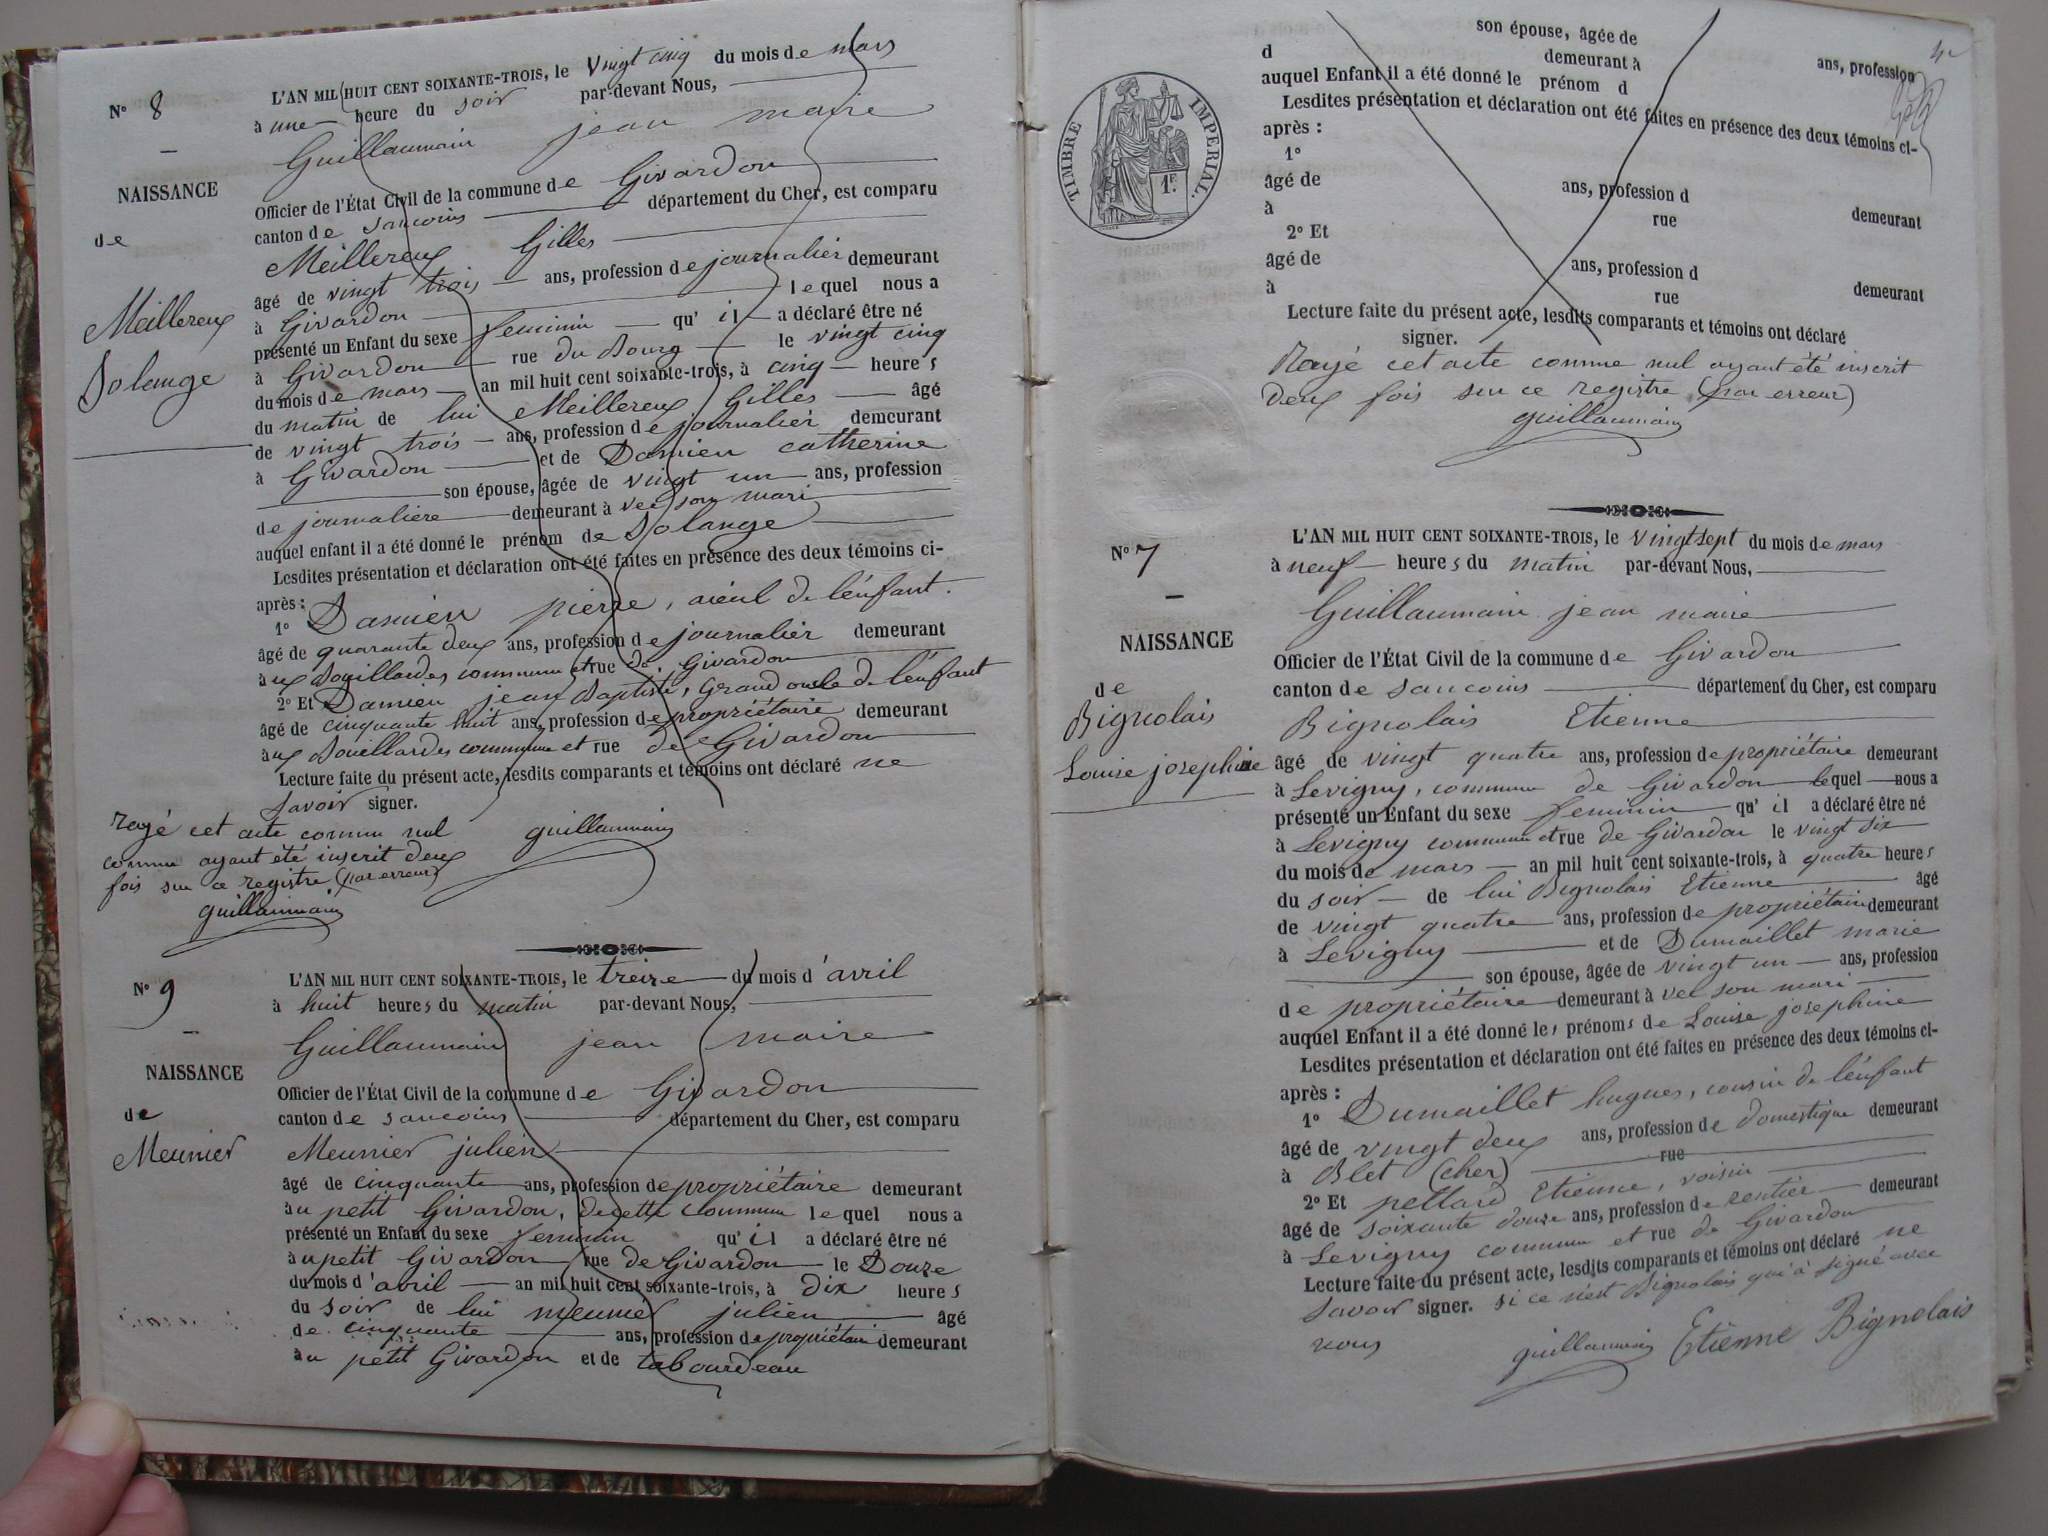 N° 8
NAISSANCE
de
Meillereux
Solange
L'AN MIL HUIT CENT SOIXANTE-TROIS, le Vingt cinq du mois de mars
à une heure du soir par-devant Nous,
Guillaumain jean maire
Officier de l'État Civil de la commune de Givardon
canton de Sancoins département du Cher, est comparu
Meillereux Gilles
âgé de vingt trois ans, profession de journalier demeurant
à Givardon lequel nous a
présenté un Enfant du sexe feminin qu'il a déclaré être né
à Givardon rue du Bourg le vingt cinq
du mois de mars an mil huit cent soixante-trois, à cinq heures
du matin de lui Meillereux Gilles âgé
de vingt trois ans, profession de journalier demeurant
à Givardon et de Damien catherine
son épouse, âgée de vingt un ans, profession
de journalière demeurant à vec son mari
auquel enfant il a été donné le prénom de Solange
Lesdites présentation et déclaration ont été faites en présence des deux témoins ci-
après :
1° Damien pierre, aieul de l'énfant.
âgé de quarante deux ans, profession de journalier demeurant
à ux Souillardes commune et rue de Givardon
2° Et Damien jean Baptiste, Grand oncle de l'énfant
âgé de cinquante huit ans, profession de propriétaire demeurant
à ux Souillardes commune et rue de Givardon
Lecture faite du présent acte, lesdits comparants et témoins ont déclaré ne
savoir signer.
guillaumain
rayé cet acte comme nul
comme ayant été inscrit deux
fois sur ce registre (par erreur)
guillaumain
N° 9
NAISSANCE
de
Meunier
L'AN MIL HUIT CENT SOIXANTE-TROIS, le treize du mois d'avril
à huit heures du matin par-devant Nous,
Guillaumain jean maire
Officier de l'État Civil de la commune de Givardon
canton de sancoins département du Cher, est comparu
Meunier julien
âgé de cinquante ans, profession de propriétaire demeurant
à u petit Givardon, de cette commune lequel nous a
présenté un Enfant du sexe feminin qu'il a déclaré être né
à u petit Givardon rue de Givardon le Douze
du mois d'avril an mil huit cent soixante-trois, à dix heures
du soir de lui meunier julien âgé
de cinquante ans, profession de propriétaire demeurant
à u petit Givardon et de tabourdeau
TIMBRE IMPÉRIAL.
1F.
son épouse, âgée de ans, profession
d demeurant à
auquel Enfant il a été donné le prénom d
Lesdites présentation et déclaration ont été faites en présence des deux témoins ci-
après :
1°
âgé de ans, profession d demeurant
à rue
2° Et
âgé de ans, profession d demeurant
à rue
Lecture faite du présent acte, lesdits comparants et témoins ont déclaré
signer.
Rayé cet acte comme nul ayant été inscrit
Deux fois sur ce registre (par erreur)
guillaumain
N° 7
NAISSANCE
de
Bignolais
Louise josephine
L'AN MIL HUIT CENT SOIXANTE-TROIS, le vingt sept du mois de mars
à neuf heures du matin par-devant Nous,
Guillaumain jean maire
Officier de l'État Civil de la commune de Givardon
canton de Sancoins département du Cher, est comparu
Bignolais Etienne
âgé de vingt quatre ans, profession de propriétaire demeurant
à Levigny, commune de Givardon lequel nous a
présenté un Enfant du sexe feminin qu'il a déclaré être né
à Levigny commune et rue de Givardon le vingt six
du mois de mars an mil huit cent soixante-trois, à quatre heures
du soir de lui Bignolais Etienne âgé
de vingt quatre ans, profession de propriétaire demeurant
à Levigny et de Dumaillet marie
son épouse, âgée de vingt un ans, profession
de propriétaire demeurant à vec son mari
auquel Enfant il a été donné les prénoms de Louise josephine
Lesdites présentation et déclaration ont été faites en présence des deux témoins ci-
après :
1° Dumaillet hugues, cousin de l'énfant
âgé de vingt deux ans, profession de domestique demeurant
à Blet (cher) rue
2° Et pellard Etienne, voisin
âgé de soixante douze ans, profession de rentier demeurant
à Levigny commune et rue de Givardon
Lecture faite du présent acte, lesdits comparants et témoins ont déclaré ne
savoir signer. si ce n'est Bignolais qui à signé avec
nous
guillaumain Etienne Bignolais